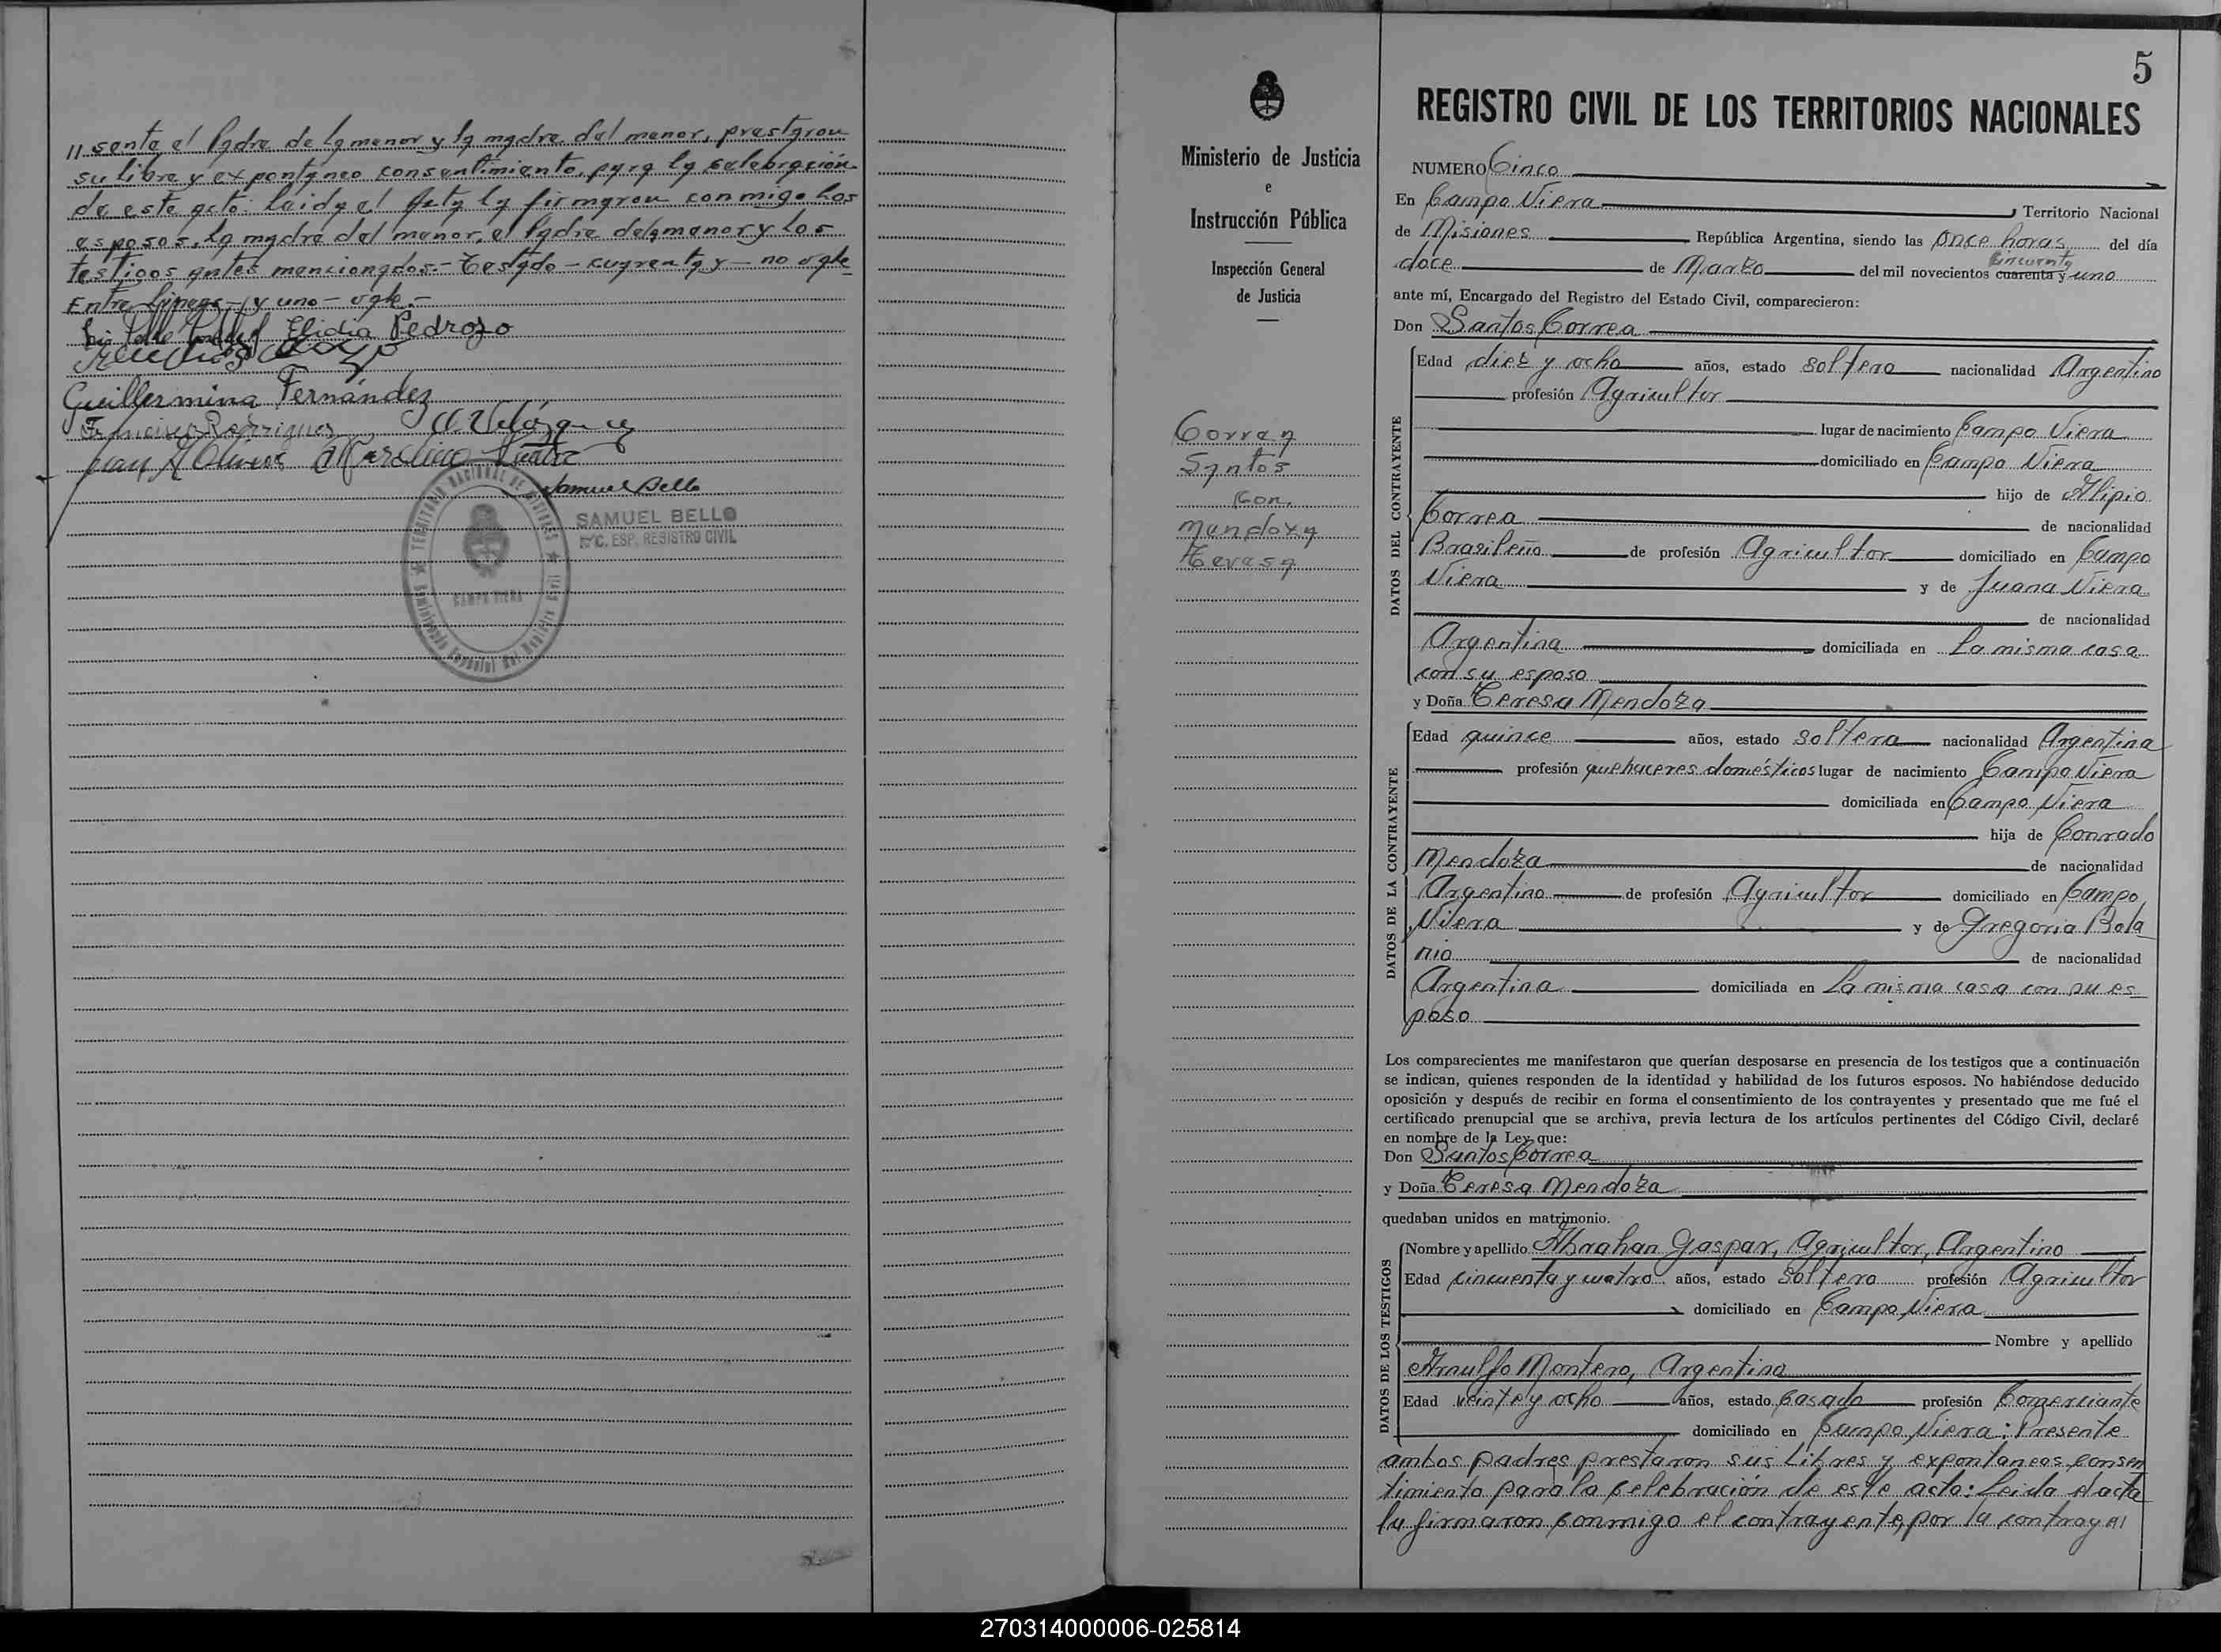 // senta el Padre de la menor y la madre del menor, prestaron
su libre y expontaneo consentimiento, para la celebración
de este acto: leida el Acta la firmaron conmigo los
esposos, la madre del menor, el Padre de la menor y los
testigos antes mencionados.- Testado - cuarenta y - no vale
Entre lineas - y uno - vale.-
Elidia Pedrozo
Guillermina Fernández
Francisco Rodriguez A Velázquez
Juan A Olivera Marcelino
Samuel Bello
SAMUEL BELLO
ENC. ESP. REGISTRO CIVIL
TERRITORIO NACIONAL DE MISIONES
CAMPO VIERA
5
Ministerio de Justicia
e
Instrucción Pública
Inspección General
de Justicia
Correa
Santos
con
Mendoza
Teresa
REGISTRO CIVIL DE LOS TERRITORIOS NACIONALES
NUMERO Cinco
En Campo Viera, Territorio Nacional
de Misiones República Argentina, siendo las once horas del día
cincuenta
doce de Marzo del mil novecientos cuarenta y uno
ante mí, Encargado del Registro del Estado Civil, comparecieron:
Don Santos Correa
DATOS DEL CONTRAYENTE
Edad diez y ocho años, estado soltero nacionalidad Argentino
profesión Agricultor
lugar de nacimiento Campo Viera
domiciliado en Campo Viera
hijo de Alipio
Correa de nacionalidad
Brasileño de profesión Agricultor domiciliado en Campo
Viera y de Juana Viera
de nacionalidad
Argentina domiciliada en La misma casa
con su esposo
y Doña Teresa Mendoza
DATOS DE LA CONTRAYENTE
Edad quince años, estado soltera nacionalidad Argentina
profesión quehaceres domésticos lugar de nacimiento Campo Viera
domiciliada en Campo Viera
hija de Conrado
Mendoza de nacionalidad
Argentino de profesión Agricultor domiciliado en Campo
Viera y de Gregoria Bela
nio de nacionalidad
Argentina domiciliada en La misma casa con su es-
poso
Los comparecientes me manifestaron que querían desposarse en presencia de los testigos que a continuación
se indican, quienes responden de la identidad y habilidad de los futuros esposos. No habiéndose deducido
oposición y después de recibir en forma el consentimiento de los contrayentes y presentado que me fué el
certificado prenupcial que se archiva, previa lectura de los artículos pertinentes del Código Civil, declaré
en nombre de la Ley que:
Don Santos Correa
y Doña Teresa Mendoza
quedaban unidos en matrimonio.
DATOS DE LOS TESTIGOS
Nombre y apellido Abrahan Gaspar, Agricultor, Argentino
Edad cincuenta y cuatro años, estado Soltero profesión Agricultor
domiciliado en Campo Viera
Nombre y apellido
Arnulfo Montero, Argentino
Edad veinte y ocho años, estado Casado profesión Comerciante
domiciliado en Campo Viera: Presente
ambos padres prestaron sus Libres y expontaneos consen
timiento para la celebración de este acto: Leida el acta
la firmaron conmigo el contrayente, por la contrayen
270314000006-025814